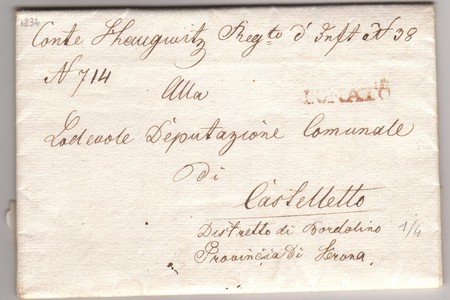 1834
Conte Haugwitz Regto d'Inft N 38
N 714
Alla
LONATO
Lodevole Deputazione Comunale
Di
Castelletto
Distretto di Bardolino 1/4
Provincia di Verona